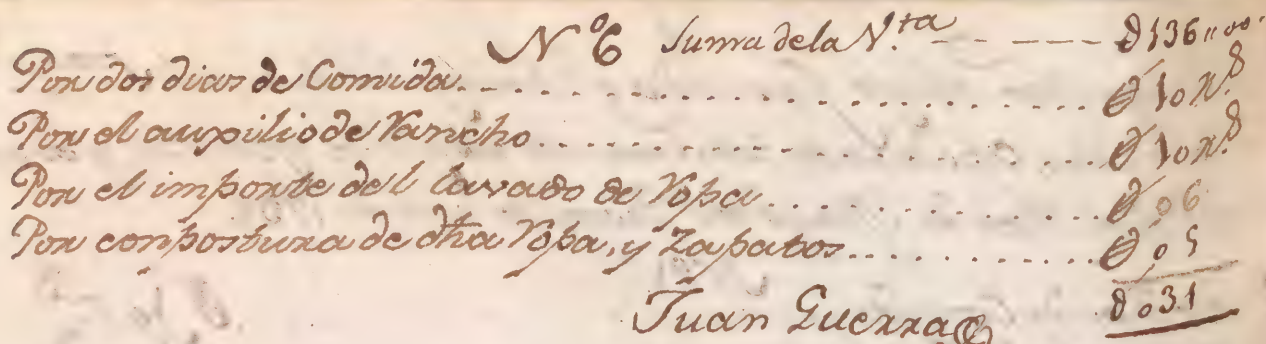 Nº 6 Suma dela V.ta - - - - - $136"00
Por dos dias de Comida. - . . . . . . . . . . . . . . $ 10 R.s
Por el aucpilio de Rancho . . . . . . . . . . . . . . $ 10 R.s
Por el importe del lavado de Ropa . . . . . . . . . . $ 06
Por conpostura de dha Ropa, y Zapatos . . . . . . . . . $ 05
Juan Guerra $ 031